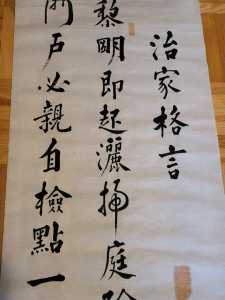 治家格言
黎明即起灑掃庭
門戶必親自檢點一